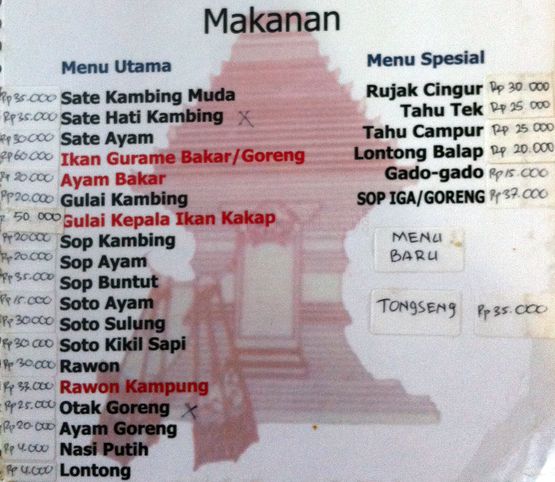 Makanan
Menu Utama
Rp 35.000 Sate Kambing Muda
Rp 35.000 Sate Hati Kambing X
Rp 30.000 Sate Ayam
Rp 60.000 Ikan Gurame Bakar/Goreng
Rp 20.000 Ayam Bakar
Rp 20.000 Gulai Kambing
50 000 Gulai Kepala Ikan Kakap
Rp 20000 Sop Kambing
Rp 20.000 Sop Ayam
Rp 35.000 Sop Buntut
Rp 15.000 Soto Ayam
Rp 30000 Soto Sulung
Rp 30.000 Soto Kikil Sapi
Rp 30.000 Rawon
Rp 37.000 Rawon Kampung
Rp 25.000 Otak Goreng X
Rp 20.000 Ayam Goreng
Rp 4.000 Nasi Putih
Rp 4.000 Lontong
Menu Spesial
Rujak Cingur Rp 30.000
Tahu Tek Rp 25 000
Tahu Campur Rp 25.000
Lontong Balap Rp 20.000
Gado-gado Rp 15.000
SOP IGA/GORENG Rp 37.000
MENU
BARU
TONGSENG Rp 35.000